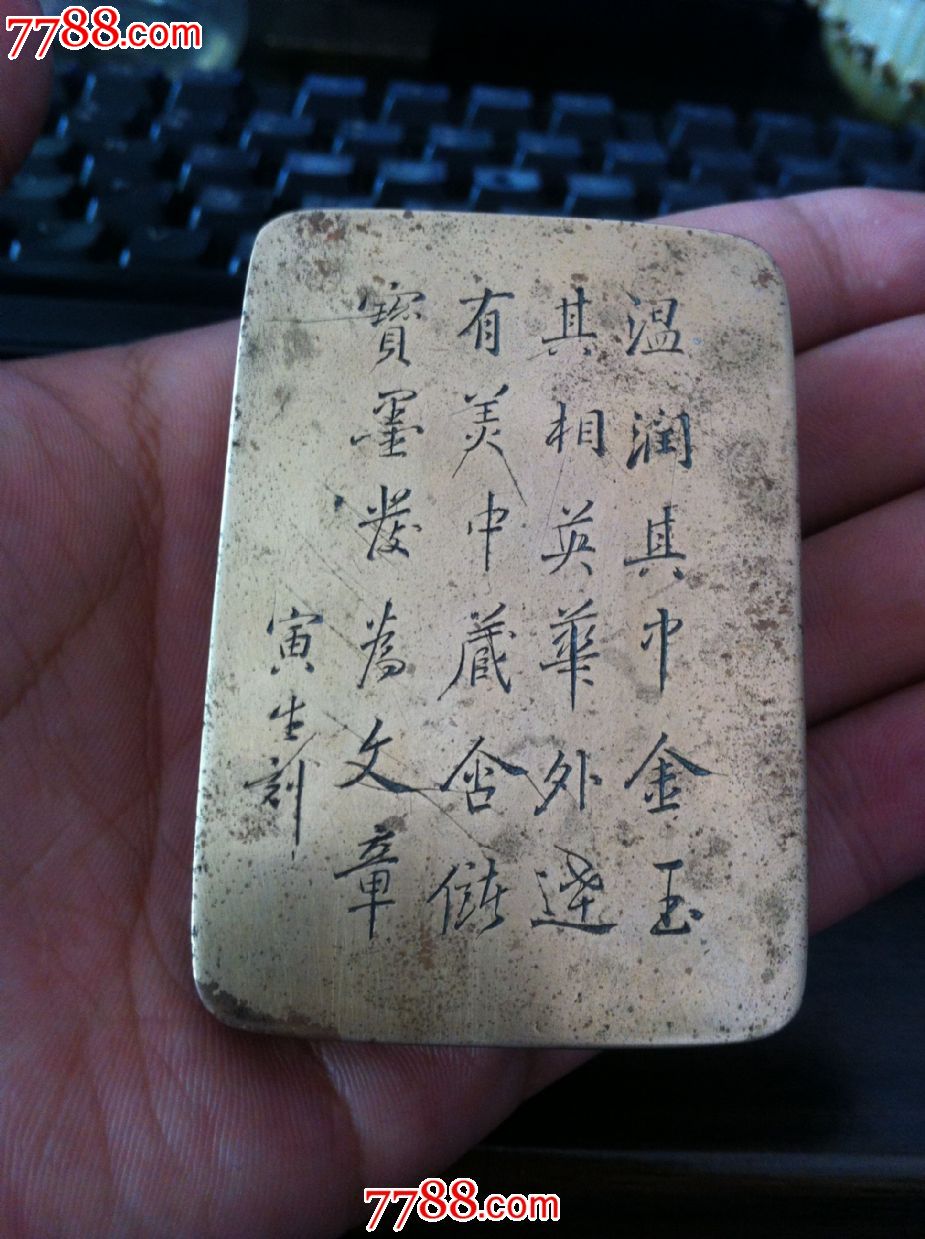 7788.com
温润其中金玉
其相英華外達
有美中蔵含儲
寳墨發為文章
寅生刻
7788.com